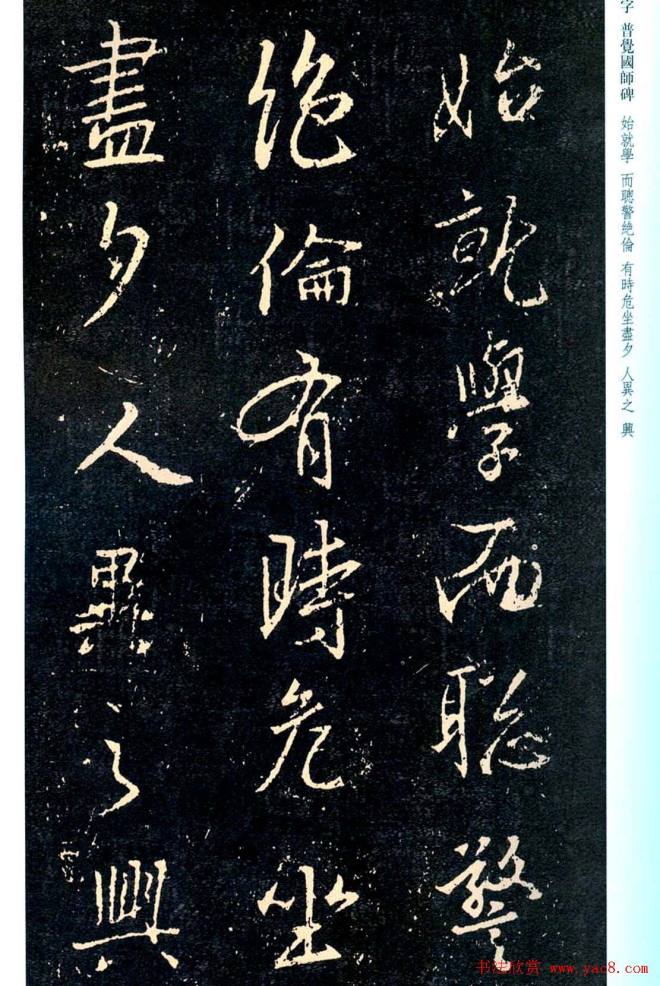 字 普覺國師碑 始就學 而聰警絶倫 有時危坐盡夕 人異之 興
始就學而聡警
絶倫有時危坐
盡夕人異之興
书法欣赏 www.yac8.com